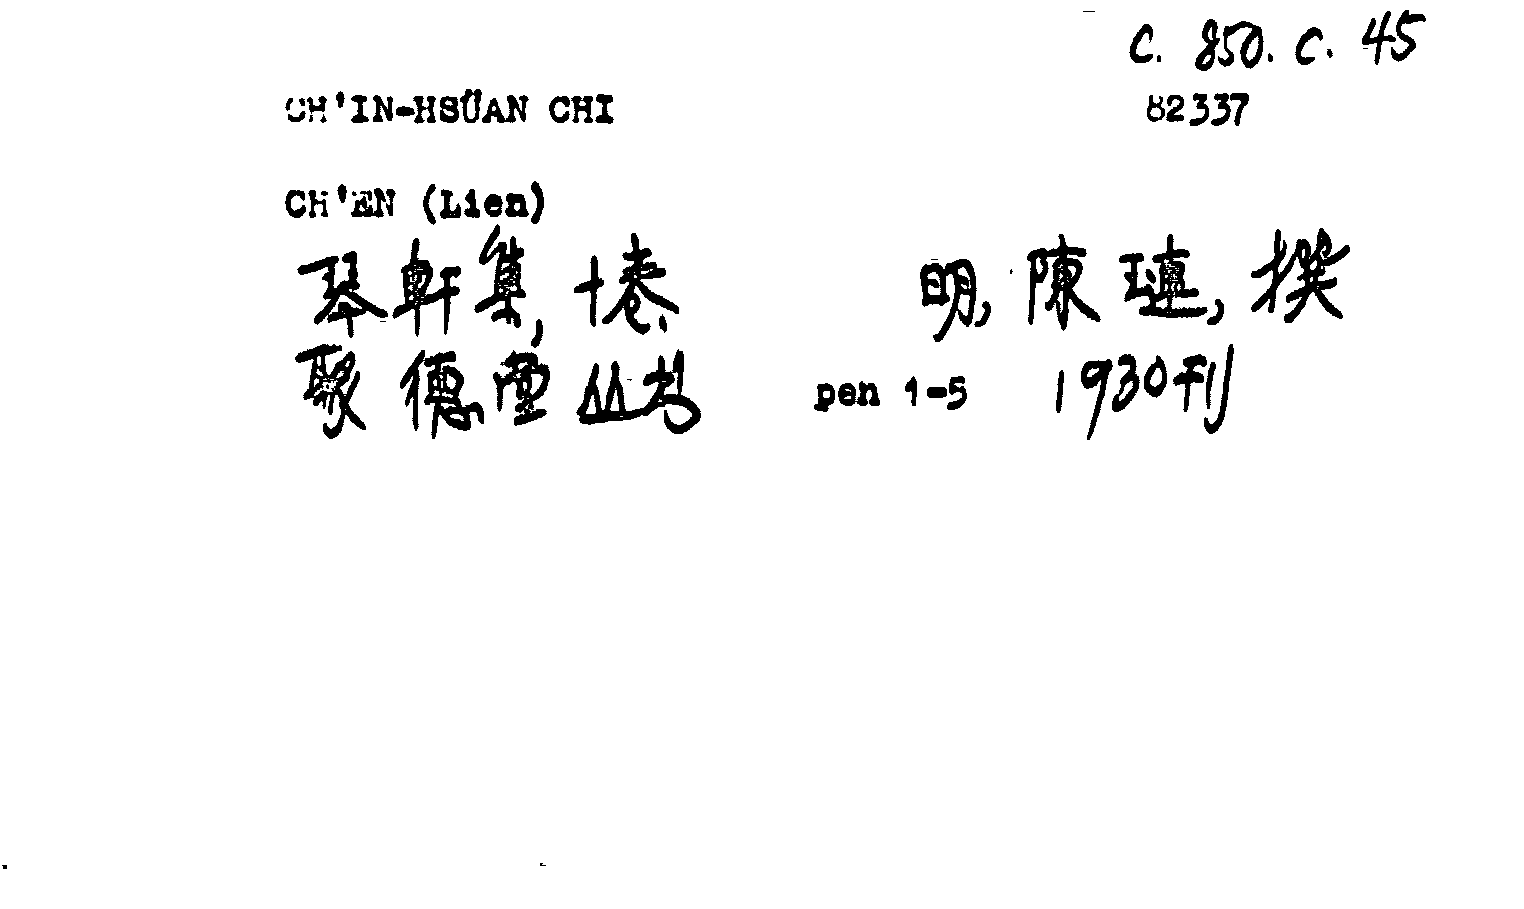 C. 850. C. 45
CH'IN-HSÜAN CHI 82337
CH'EN (Lien)
琴軒集, 十卷. 明, 陳璉, 撰
聚德堂丛书 pen 1-5 1930刊